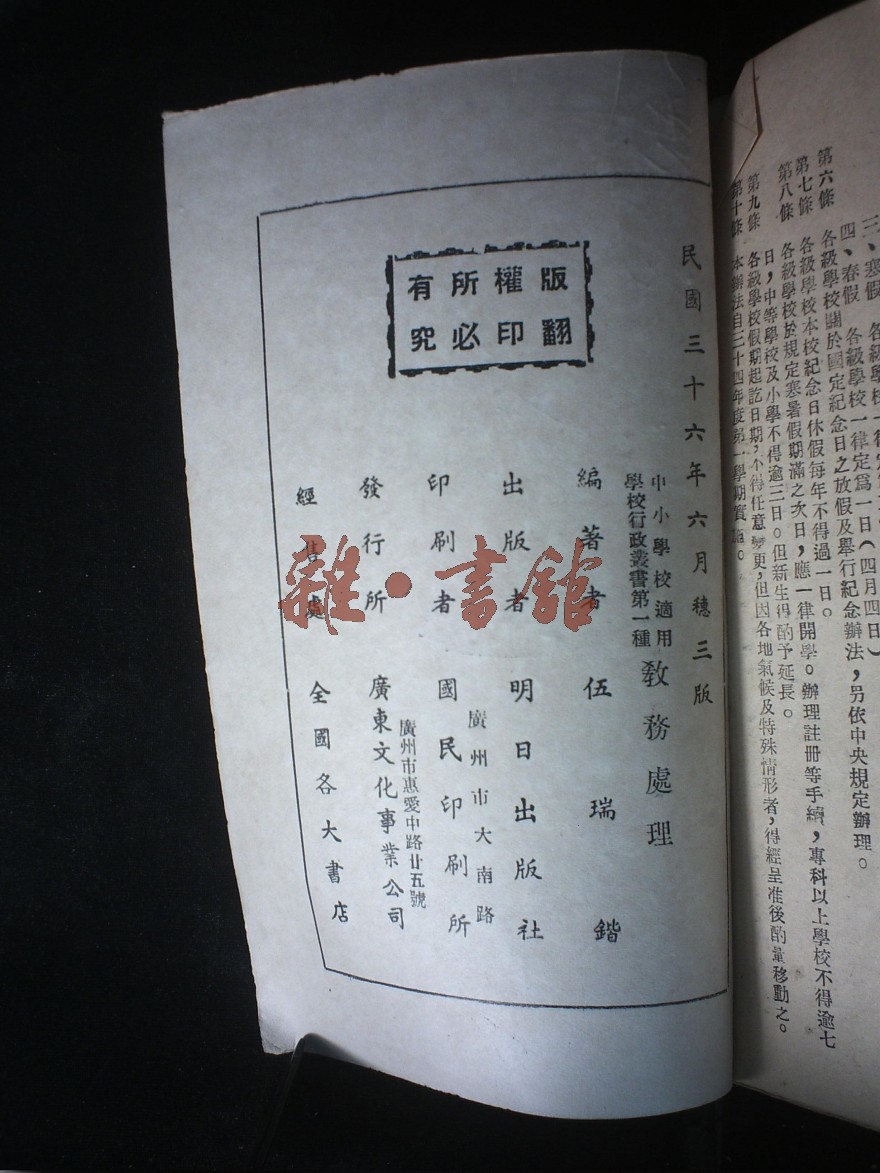 三、寒假 各級學校一律定
四、春假 各級學校一律定爲一日(四月四日)
第六條 各級學校關於國定紀念日之放假及舉行紀念辦法,另依中央規定辦理。
第七條 各級學校本校紀念日休假每年不得過一日。
第八條 各級學校於規定寒暑假期滿之次日,應一律開學。辦理註冊等手續,專科以上學校不得逾七
日,中等學校及小學不得逾三日。但新生得酌予延長。
第九條 各級學校假期起訖日期,不得任意變更,但因各地氣候及特殊情形者,得經呈准後酌量移動之。
第十條 本辦法自三十四年度第一學期實施。
民國三十六年六月穗三版
版權所有
翻印必究
中小學校適用
學校行政叢書第一種
教務處理
編著者 伍瑞鍇
出版者 明日出版社
廣州市大南路
印刷者 國民印刷所
廣州市惠愛中路廿五號
發行所 廣東文化事業公司
經售處 全國各大書店
雜·書館